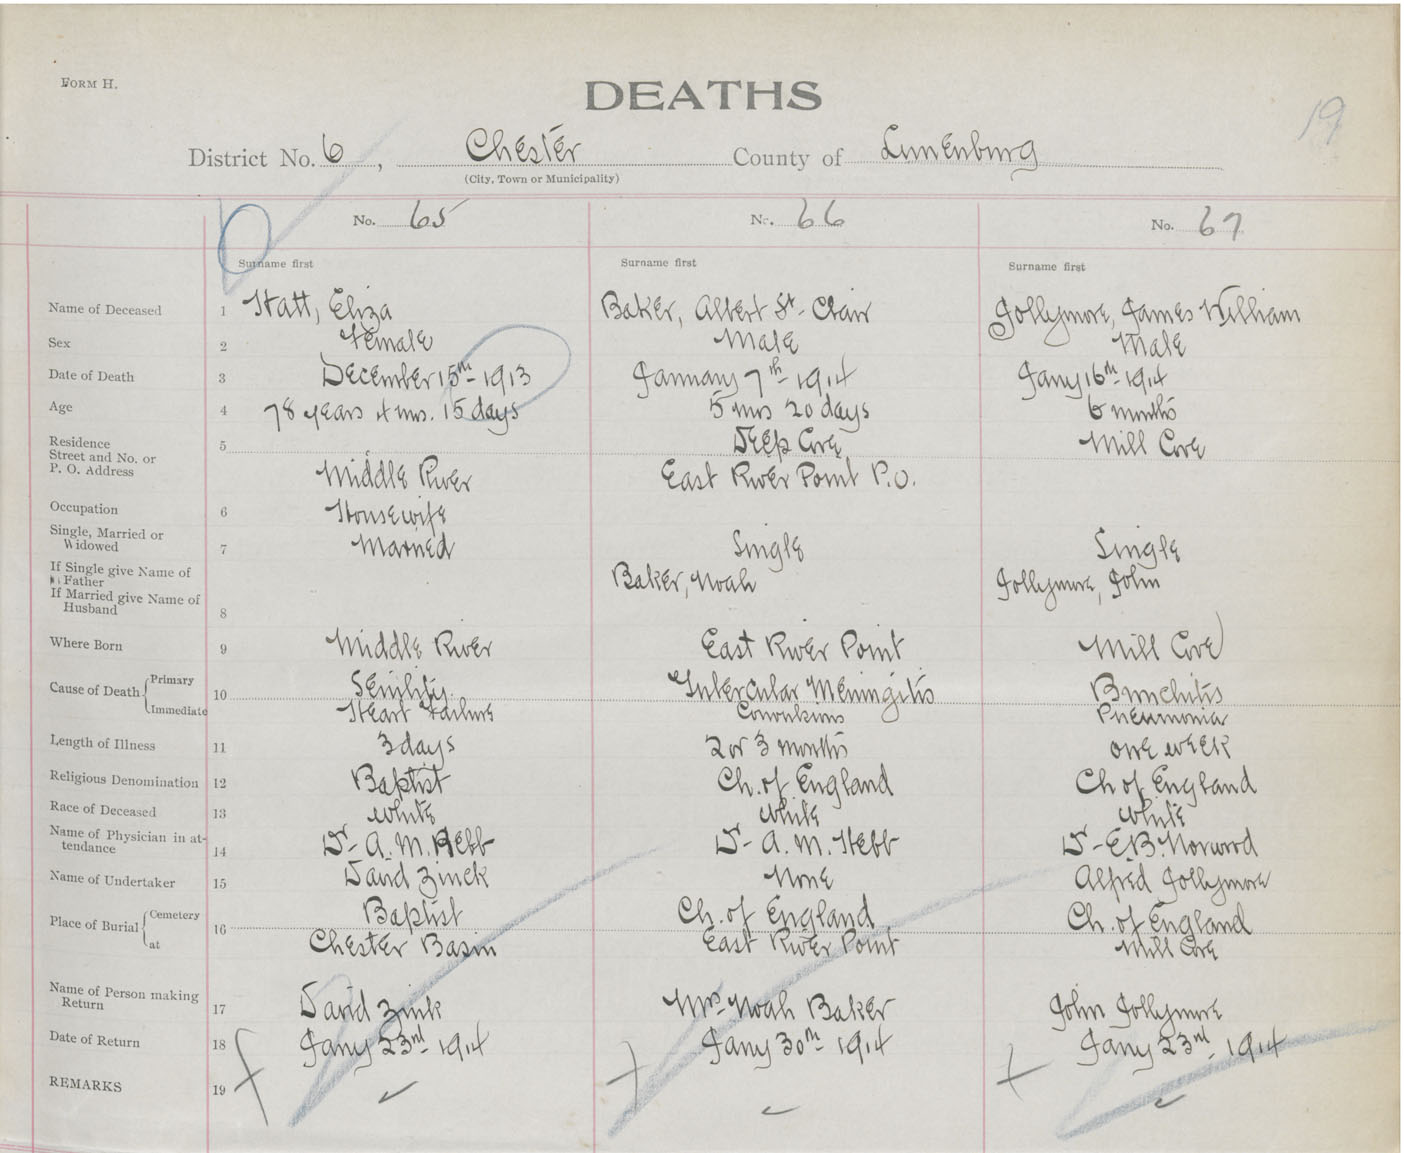 FORM H.
DEATHS
19
District No. 6, Chester County of Lunenburg
(City, Town or Municipality)
No. 65 No. 66 No. 67
Surname first Surname first Surname first
Name of Deceased 1 Hatt, Eliza Baker, Albert St. Clair Jollymore, James William
Sex 2 Female Male Male
Date of Death 3 December 15th 1913 January 7th 1914 Jany 16th 1914
Age 4 78 years 4 mos. 15 days 5 mos 20 days 6 months
Residence 5 Deep Cove Mill Cove
Street and No. or
P. O. Address Middle River East River Point P.O.
Occupation 6 Housewife
Single, Married or
Widowed 7 Married Single Single
If Single give Name of
Father Baker, Noah Jollymore, John
If Married give Name of
Husband 8
Where Born 9 Middle River East River Point Mill Cove
Cause of Death Primary 10 Senility Tubercular Meningitis Bronchitis
Immediate Heart Failure Convulsions Pneumonia
Length of Illness 11 3 days 2 or 3 months one week
Religious Denomination 12 Baptist Ch. of England Ch of England
Race of Deceased 13 White White White
Name of Physician in at-
tendance 14 Dr A. M. Hebb Dr A. M. Hebb Dr E.B. Norwood
Name of Undertaker 15 David Zinck None Alfred Jollymore
Place of Burial Cemetery 16 Baptist Ch. of England Ch. of England
at Chester Basin East River Point Mill Cove
Name of Person making
Return 17 David Zink Mrs Noah Baker John Jollymore
Date of Return 18 Jany 23rd 1914 Jany 30th 1914 Jany 23rd 1914
REMARKS 19